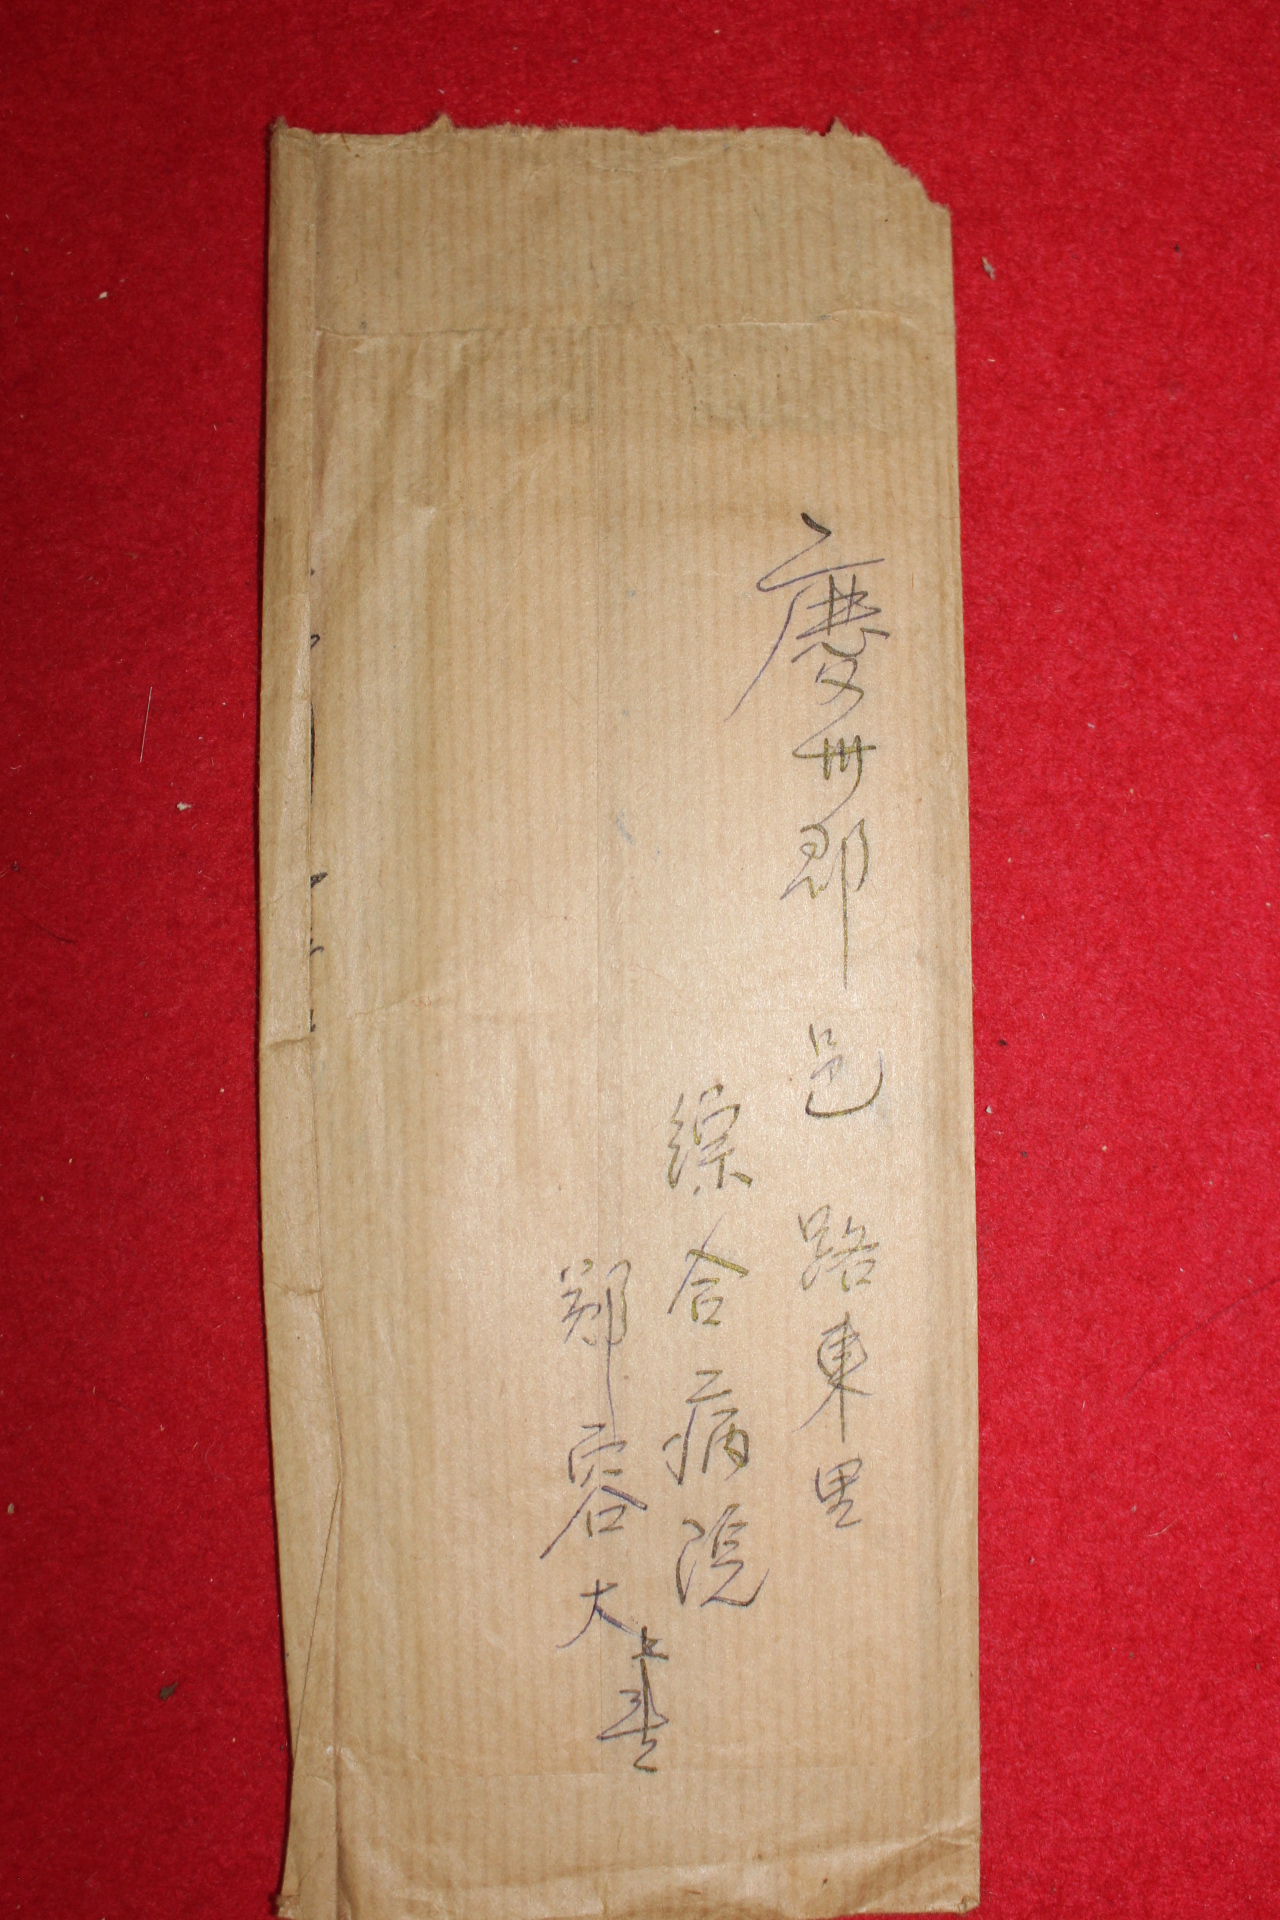 慶州郡 邑 路東里
綜合病院
鄭容大 上書